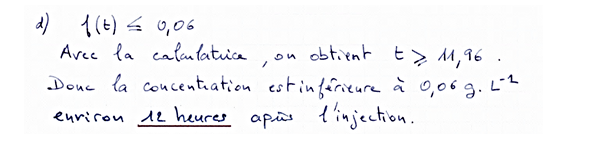 d) f(t) ⩽ 0,06
Avec la calculatrice, on obtient t ⩾ 11,96.
Donc la concentration est inférieure à 0,06 g. L⁻¹
environ 12 heures après l'injection.